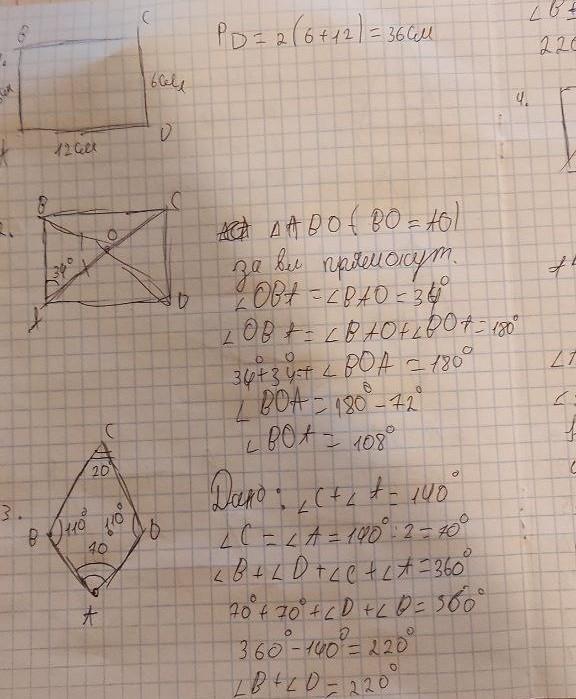 B C
P D = 2(6+12) = 36см
6см
12см
D
∠B
220
4.
2.
B C
O
34°
A D
△ABO (BO = AO)
за вл прямокут.
∠OBA = ∠BAO = 34°
∠OBA = ∠BAO + ∠BOA = 180°
34° + 34° + ∠BOA = 180°
∠BOA = 180° - 72°
∠BOA = 108°
3.
C
20°
B 110° 110° D
70°
A
Дано: ∠C + ∠A = 140°
∠C = ∠A = 140° : 2 = 70°
∠B + ∠D + ∠C + ∠A = 360°
70° + 70° + ∠D + ∠D = 360°
360° - 140° = 220°
∠B + ∠D = 220°